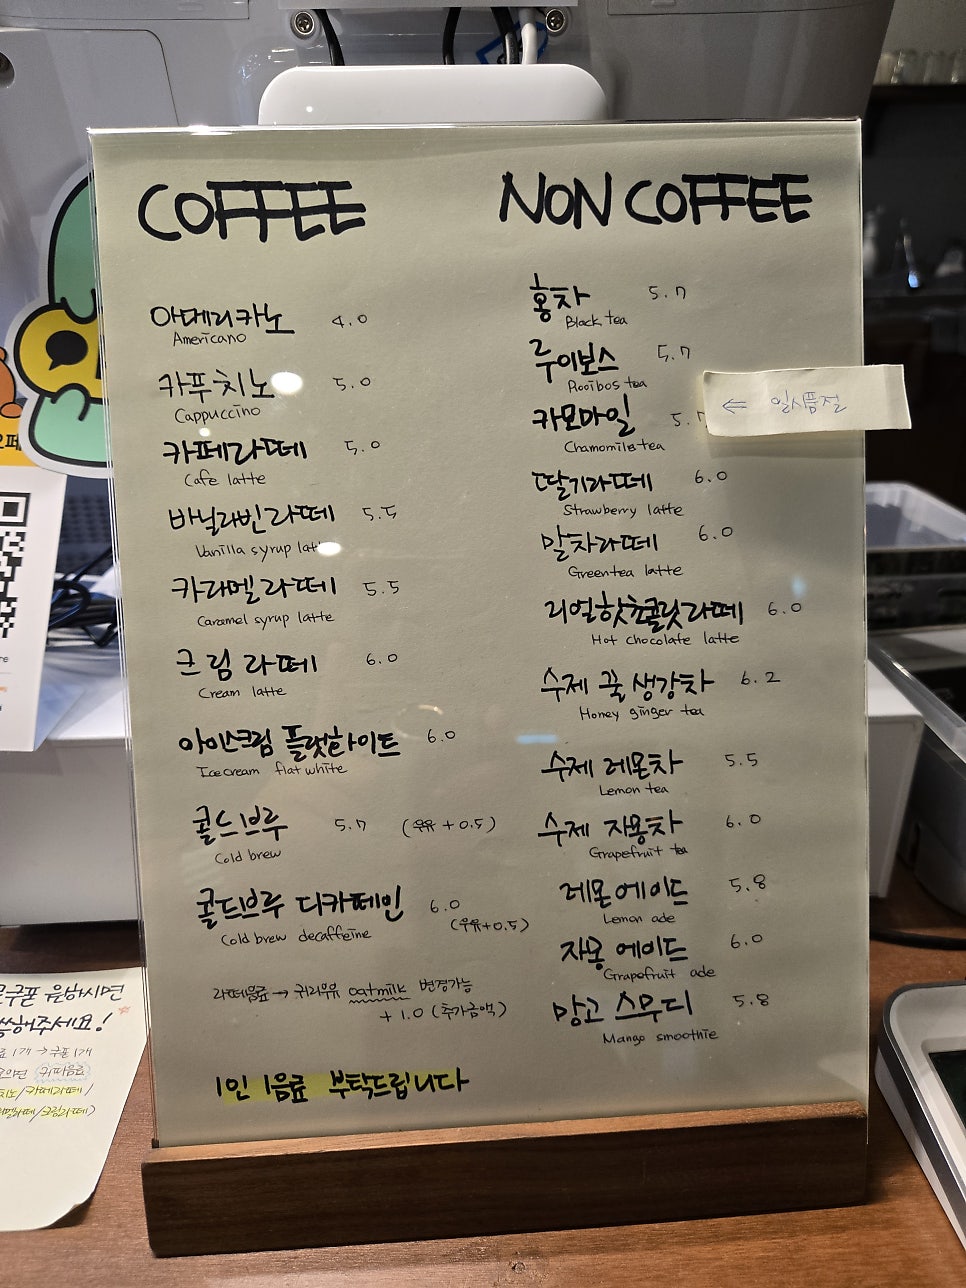 COFFEE
아메리카노 4.0
Americano
카푸치노 5.0
Cappuccino
카페라떼 5.0
Cafe latte
바닐라빈라떼 5.5
Vanilla syrup
카라멜라떼 5.5
Caramel syrup latte
크림라떼 6.0
Cream latte
아이스크림 플랫화이트 6.0
Icecream flat white
콜드브루 5.7 (우유 +0.5)
Cold brew
콜드브루 디카페인 6.0
(우유+0.5)
Cold brew decaffeine
라떼음료 → 귀리우유 oatmilk 변경가능
+1.0 (추가금액)
1인 1음료 부탁드립니다
NON COFFEE
홍차 5.7
Black tea
루이보스 5.7
Rooibos tea
카모마일
Chamomile tea
⇐ 일시품절
딸기라떼 6.0
Strawberry latte
말차라떼 6.0
Greentea latte
리얼핫초콜릿라떼 6.0
Hot chocolate latte
수제 꿀 생강차 6.2
Honey ginger tea
수제 레몬차 5.5
Lemon tea
수제 자몽차 6.0
Grapefruit tea
레몬에이드 5.8
Lemon ade
자몽 에이드 6.0
Grapefruit ade
망고 스무디 5.8
Mango smoothie
쿠폰 원하시면
해주세요!
1개 → 쿠폰 1개
커피음료
/카페라떼/
/크림라떼)